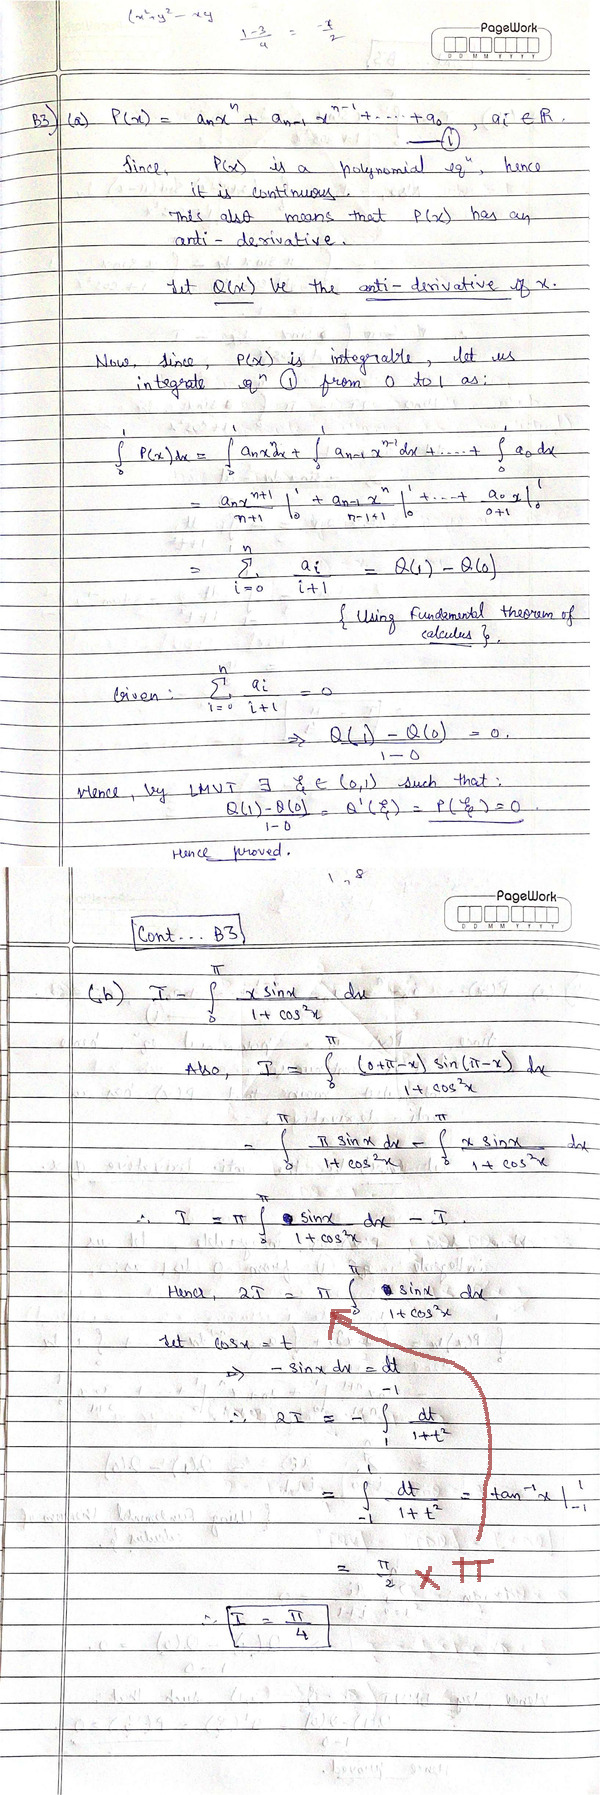 (x²+y² - xy
(1-3)/4 = -x/2
PageWork
D D M M Y Y Y Y
B3) (a) P(x) = aₙxⁿ + aₙ₋₁ xⁿ⁻¹ + .... + a₀ , ai ∈ ℝ.
①
Since, P(x) is a polynomial eqⁿ, hence
it is continuous.
This also means that P(x) has an
anti-derivative.
Let Q(x) be the anti-derivative of x.
Now, Since, P(x) is integrable, let us
integrate eqⁿ ① from 0 to 1 as:
∫₀¹ P(x)dx = ∫₀¹ aₙxⁿdx + ∫₀¹ aₙ₋₁ xⁿ⁻¹dx + .... + ∫₀¹ a₀ dx
= aₙxⁿ⁺¹/(n+1) |₀¹ + aₙ₋₁ xⁿ/(n-1+1) |₀¹ + .... + a₀ x/(0+1) |₀¹
= Σ_{i=0}^{n} ai/(i+1) = Q(1) - Q(0)
{ Using Fundamental theorem of
calculus }.
Given: Σ_{i=0}^{n} ai/(i+1) = 0
⇒ (Q(1) - Q(0))/(1-0) = 0.
Hence, by LMVT ∃ ξ ∈ (0,1) such that:
(Q(1)-Q(0))/(1-0) = Q'(ξ) = P(ξ) = 0.
Hence proved.
1, 8
PageWork
D D M M Y Y Y Y
Cont... B3
(b) I = ∫₀^π x sinx/(1+cos²x) dx
Also, I = ∫₀^π (0+π-x) sin(π-x)/(1+cos²x) dx
= ∫₀^π π sinx dx/(1+cos²x) - ∫₀^π x sinx/(1+cos²x) dx
∴ I = π ∫₀^π sinx/(1+cos²x) dx - I.
Hence, 2I = π ∫₀^π sinx/(1+cos²x) dx
Let cosx = t
⇒ -sinx dx = dt
∴ 2I = - ∫₁^-1 dt/(1+t²)
= ∫₋₁^1 dt/(1+t²) = tan⁻¹x |₋₁^1
= π/2 × π
∴ I = π/4